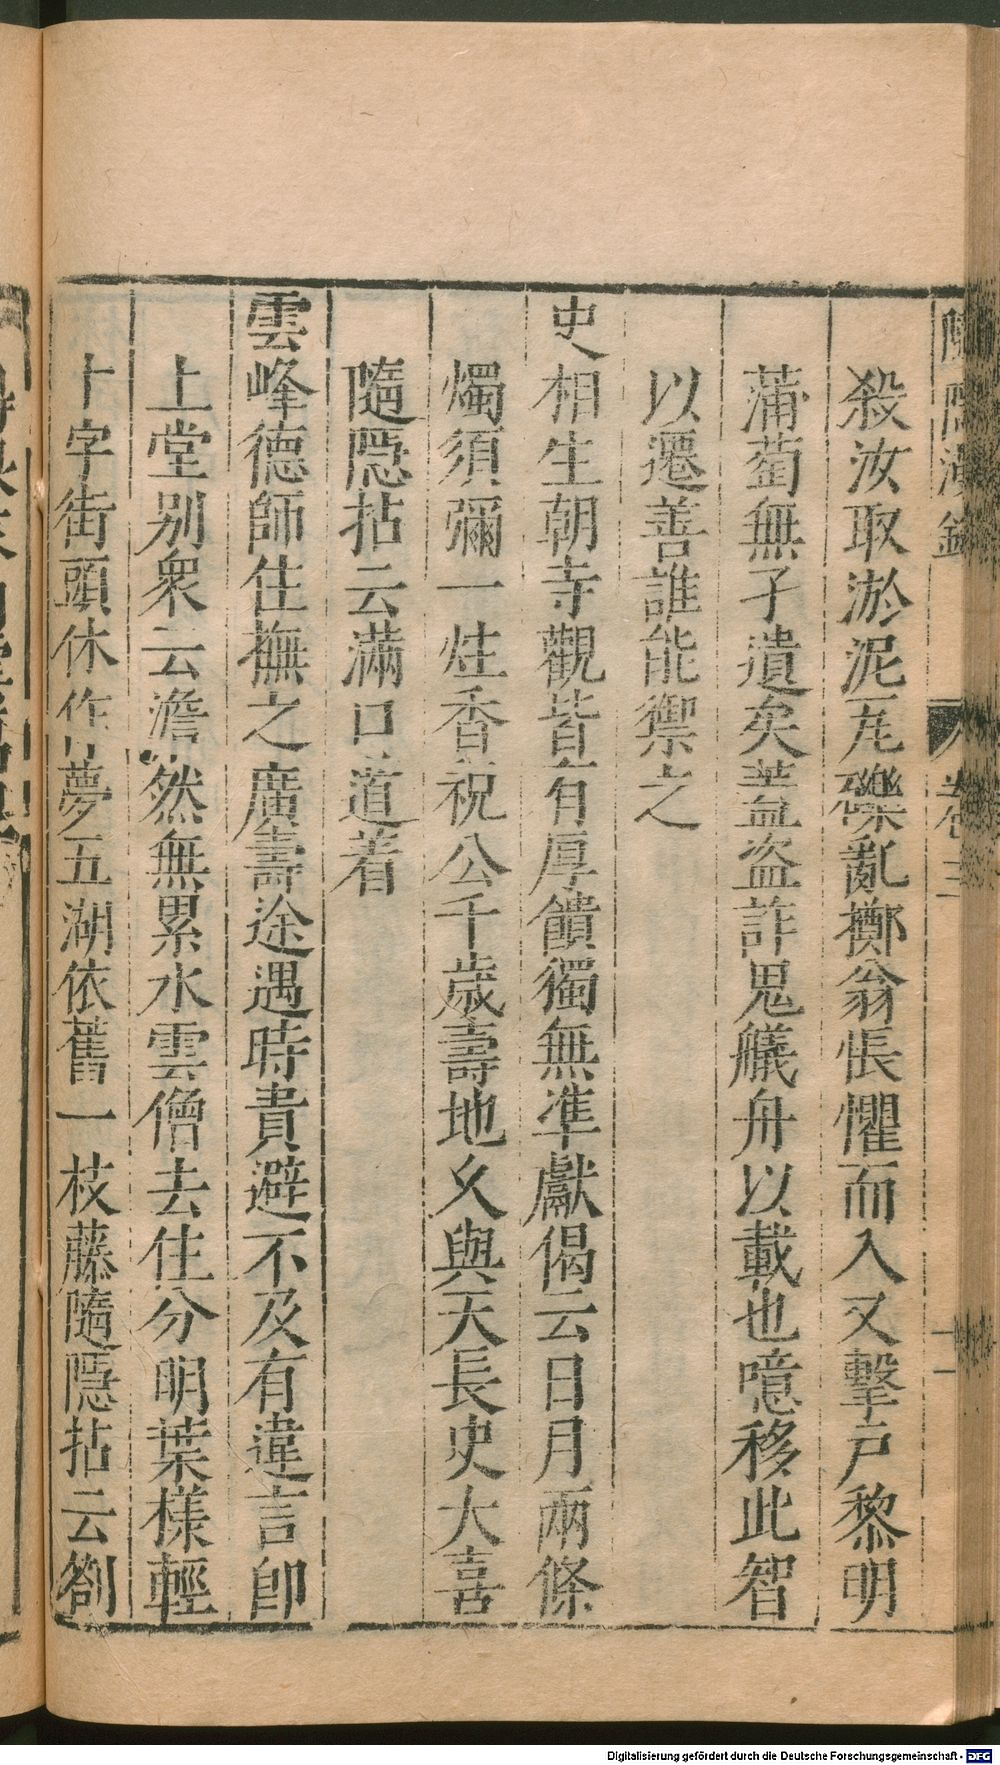 殺汝取淤泥瓦礫亂擲翁悵懼而入又擊戶黎明
蒲萄無孑遺矣葢盜詐鬼艤舟以載也噫移此智
以遷善誰能禦之
史相生朝寺觀皆有厚饋獨無準獻偈云日月兩條
燭須彌一炷香祝公千歲壽地久與天長史大喜
隨隱拈云滿口道着
雲峰德師住撫之廣壽途遇時貴避不及有違言卽
上堂别衆云澹然無累水雲僧去住分明葉樣輕
十字街頭休作夢五湖依舊一枝藤隨隱拈云劄
卷三
十一
Digitalisierung gefördert durch die Deutsche Forschungsgemeinschaft - DFG